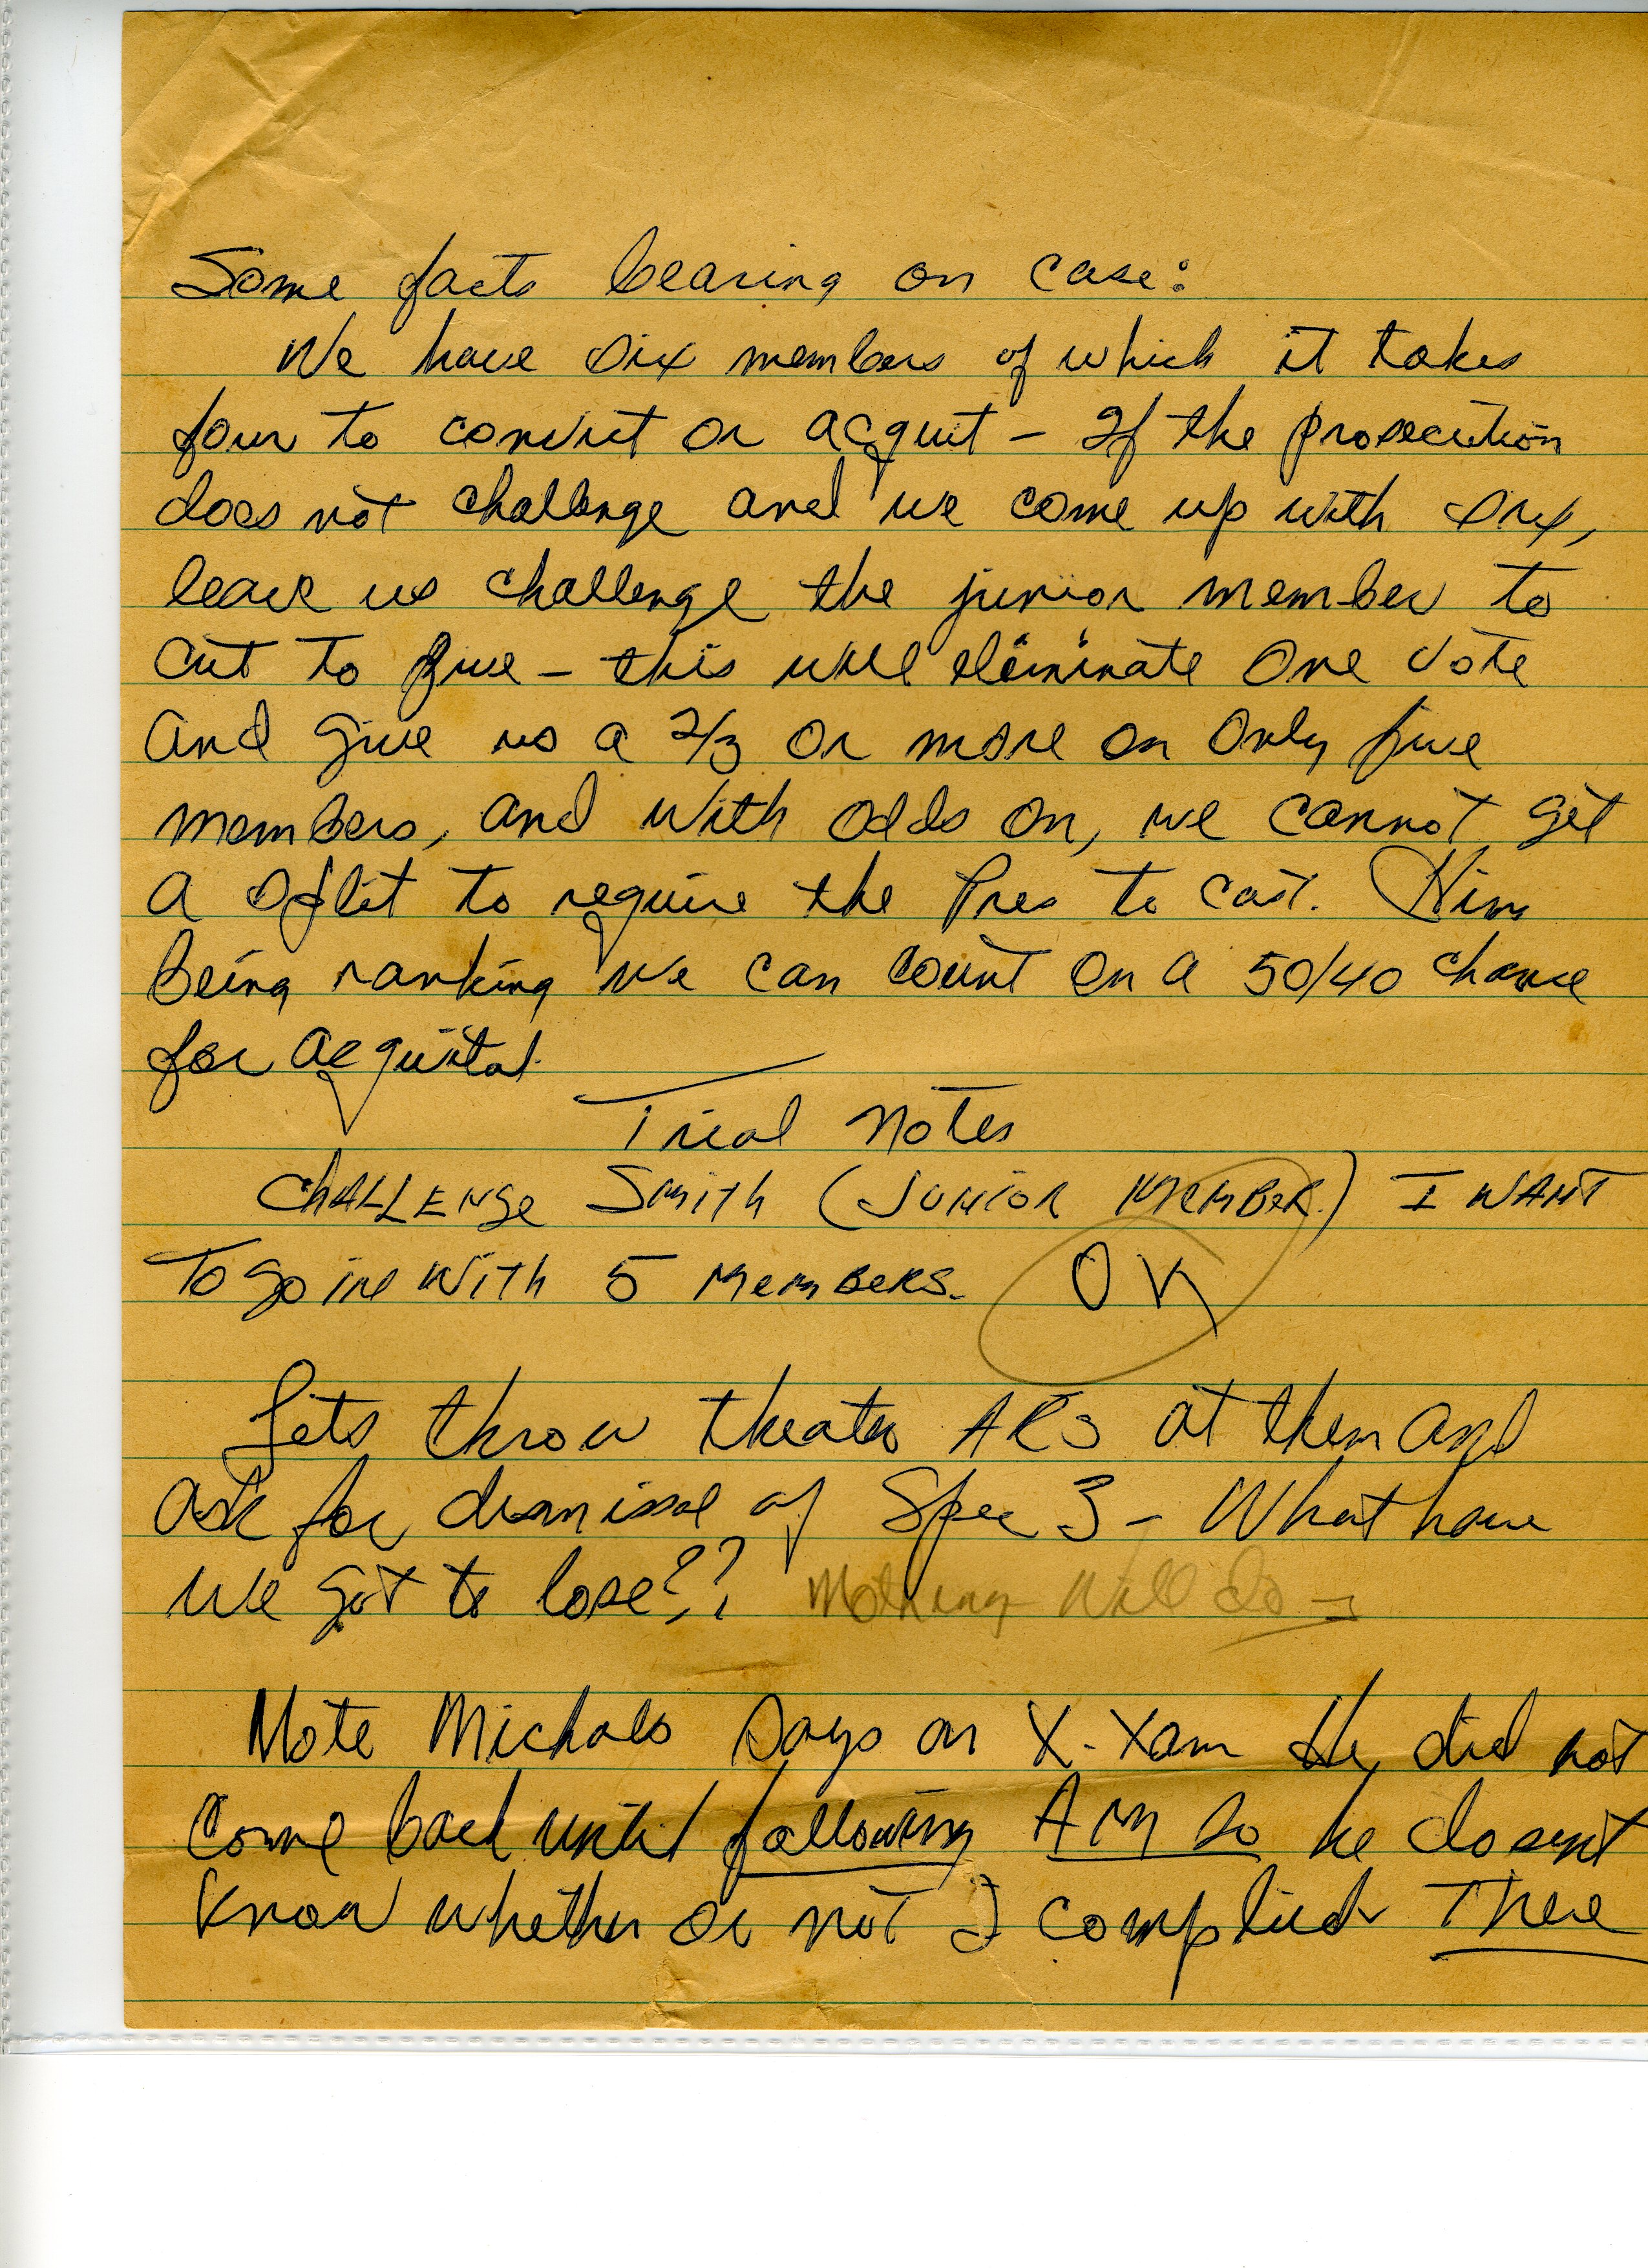 Some facts bearing on case:
We have six members of which it takes
four to convict or acquit - If the prosecution
does not challenge and we come up with six,
leave us challenge the junior member to
cut to five - this will eliminate one vote
and give us a 2/3 or more on only five
members, and with odds on, we cannot get
a split to require the Pres to cast. Him
Being ranking we can count on a 50/40 chance
for acquital.
Trial Notes
CHALLENGE SMITH (JUNIOR MEMBER) I WANT
To go in WITH 5 MEMBERS. OK
Lets throw theater ARs at them and
ask for dismissal of Spec 3 - What have
we got to lose?? Nothing Will do -
Note Michals says on X-Xam He did not
come back until following AM so he doesnt
know whether or not I complied There